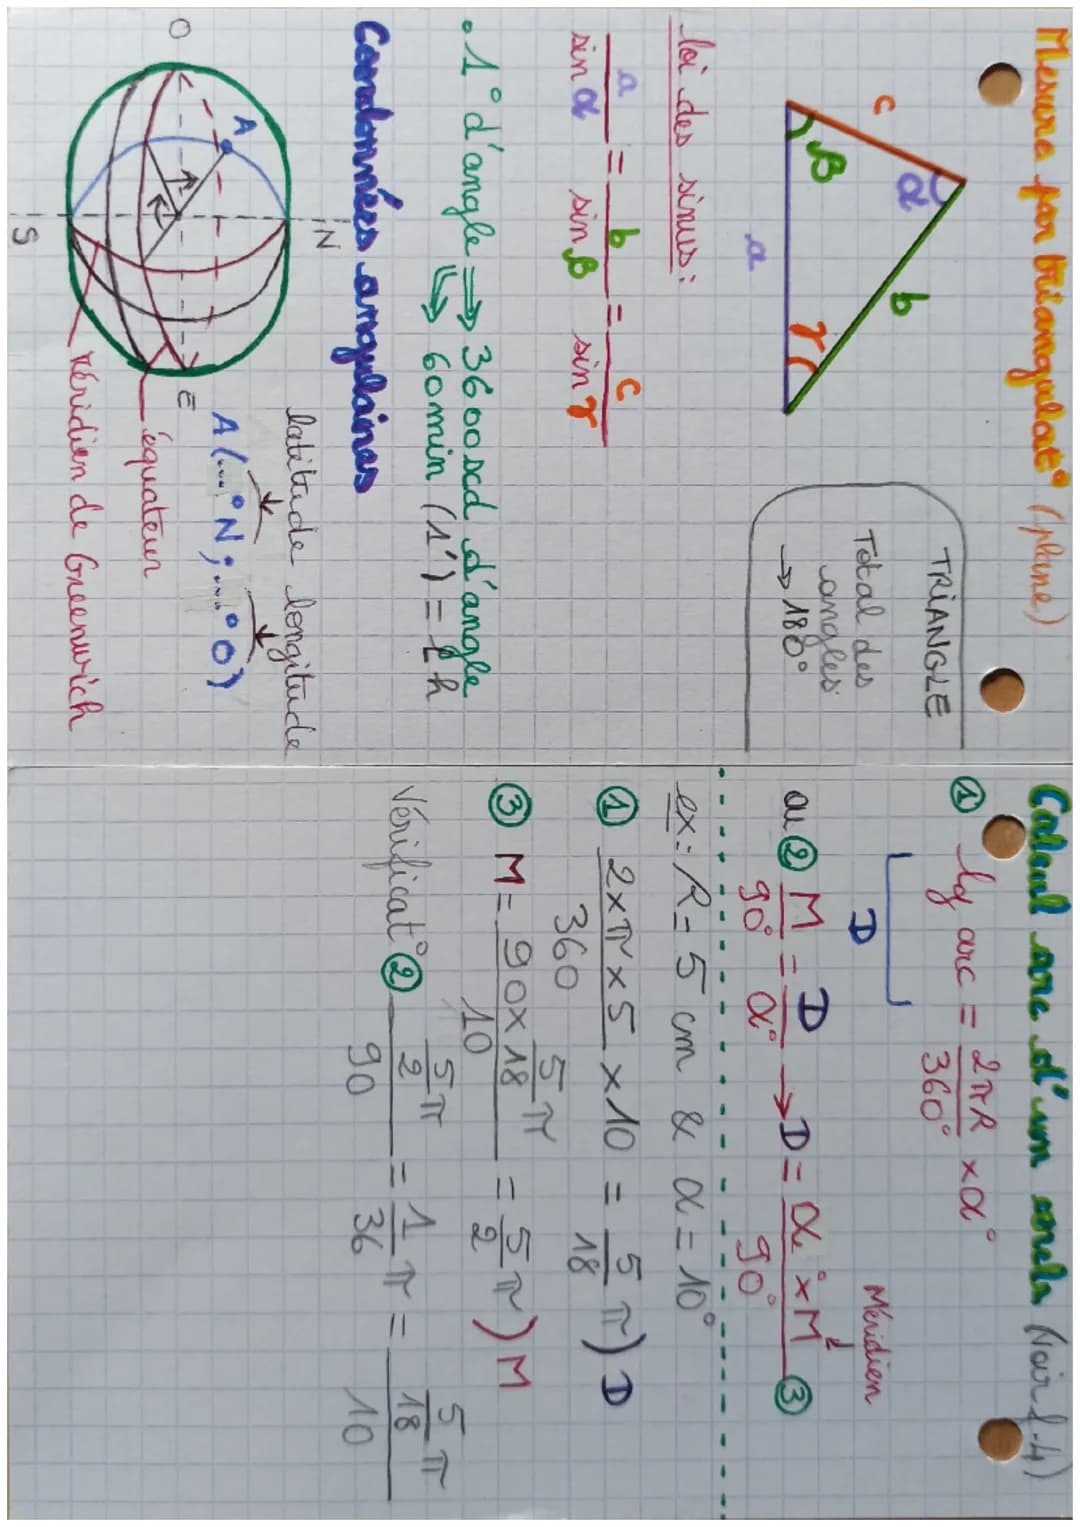 Mesure par triangulat° (plane)
c
β
α
a
b
γ
TRIANGLE
Total des
angles
→ 180°
loi des sinus :
a/sin α = b/sin β = c/sin γ
• 1° d'angle ⇒ 3600scd d'angle
⇒ 60min (1') = 1 h
Coordonnées angulaires
latitude longitude
A (...°N ; ...°O)
O
A
N
S
E
équateur
Méridien de Greenwich
Calcul arc d'un cercle (Voir f.4)
① lg arc = 2πR/360° × α°
D
Méridien
ou ② M/90° = D/α° → D = α° × M/90° ③
ex : R = 5 cm & α = 10°
① 2×π×5/360 × 10 = 5/18 π) D
③ M = 90 × 5/18 π/10 = 5/2 π) M
Vérificat° ② 5/2 π/90 = 1/36 π = 5/18 π/10